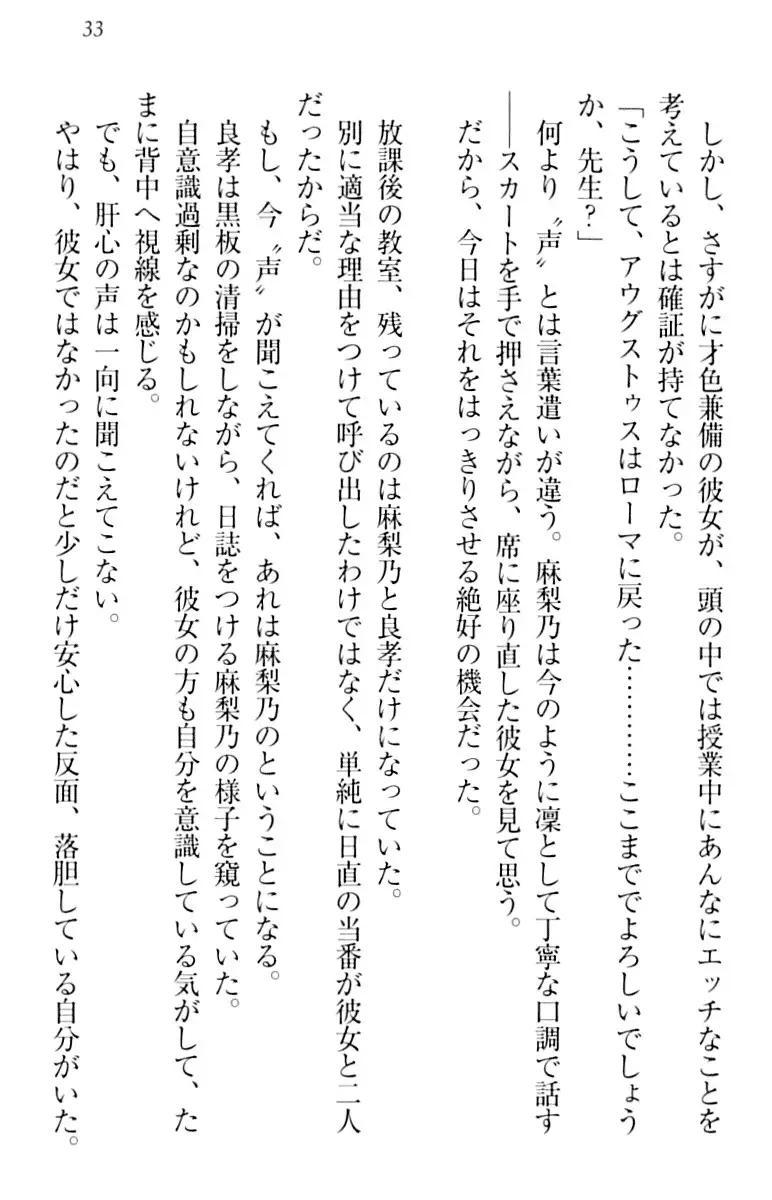 33
しかし、さすがに才色兼備の彼女が、頭の中では授業中にあんなにエッチなことを
考えているとは確証が持てなかった。
「こうして、アウグストゥスはローマに戻った…………ここまででよろしいでしょう
か、先生？」
何より〝声〟とは言葉遣いが違う。麻梨乃は今のように凛として丁寧な口調で話す
――スカートを手で押さえながら、席に座り直した彼女を見て思う。
だから、今日はそれをはっきりさせる絶好の機会だった。
放課後の教室、残っているのは麻梨乃と良孝だけになっていた。
別に適当な理由をつけて呼び出したわけではなく、単純に日直の当番が彼女と二人
だったからだ。
もし、今〝声〟が聞こえてくれば、あれは麻梨乃のということになる。
良孝は黒板の清掃をしながら、日誌をつける麻梨乃の様子を窺っていた。
自意識過剰なのかもしれないけれど、彼女の方も自分を意識している気がして、た
まに背中へ視線を感じる。
でも、肝心の声は一向に聞こえてこない。
やはり、彼女ではなかったのだと少しだけ安心した反面、落胆している自分がいた。